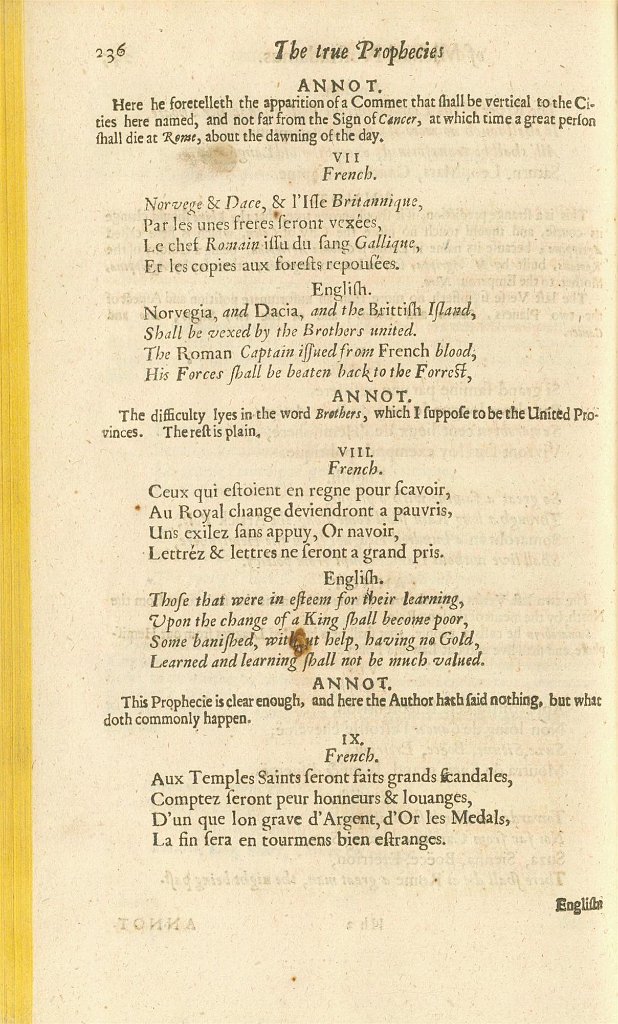 236 The true Prophecies
ANNOT.
Here he foretelleth the apparition of a Commet that ſhall be vertical to the Ci-
ties here named, and not far from the Sign of Cancer, at which time a great perſon
ſhall die at Rome, about the dawning of the day.
VII
French.
Norvege & Dace, & l'Iſle Britannique,
Par les unes freres ſeront vexées,
Le chef Romain iſſu du ſang Gallique,
Et les copies aux foreſts repouſées.
Engliſh.
Norvegia, and Dacia, and the Brittiſh Iſland,
Shall be vexed by the Brothers united.
The Roman Captain iſſued from French blood,
His Forces ſhall be beaten back to the Forreſt,
ANNOT.
The difficulty lyes in the word Brothers, which I ſuppoſe to be the United Pro-
vinces. The reſt is plain.
VIII.
French.
Ceux qui eſtoient en regne pour ſcavoir,
Au Royal change deviendront a pauvris,
Uns exilez ſans appuy, Or navoir,
Lettréz & lettres ne ſeront a grand pris.
Engliſh.
Thoſe that were in eſteem for their learning,
Upon the change of a King ſhall become poor,
Some baniſhed, without help, having no Gold,
Learned and learning ſhall not be much valued.
ANNOT.
This Prophecie is clear enough, and here the Author hath ſaid nothing, but what
doth commonly happen.
IX.
French.
Aux Temples Saints ſeront faits grands ſcandales,
Comptez ſeront peur honneurs & louanges,
D'un que lon grave d'Argent, d'Or les Medals,
La fin ſera en tourmens bien eſtranges.
Engliſh